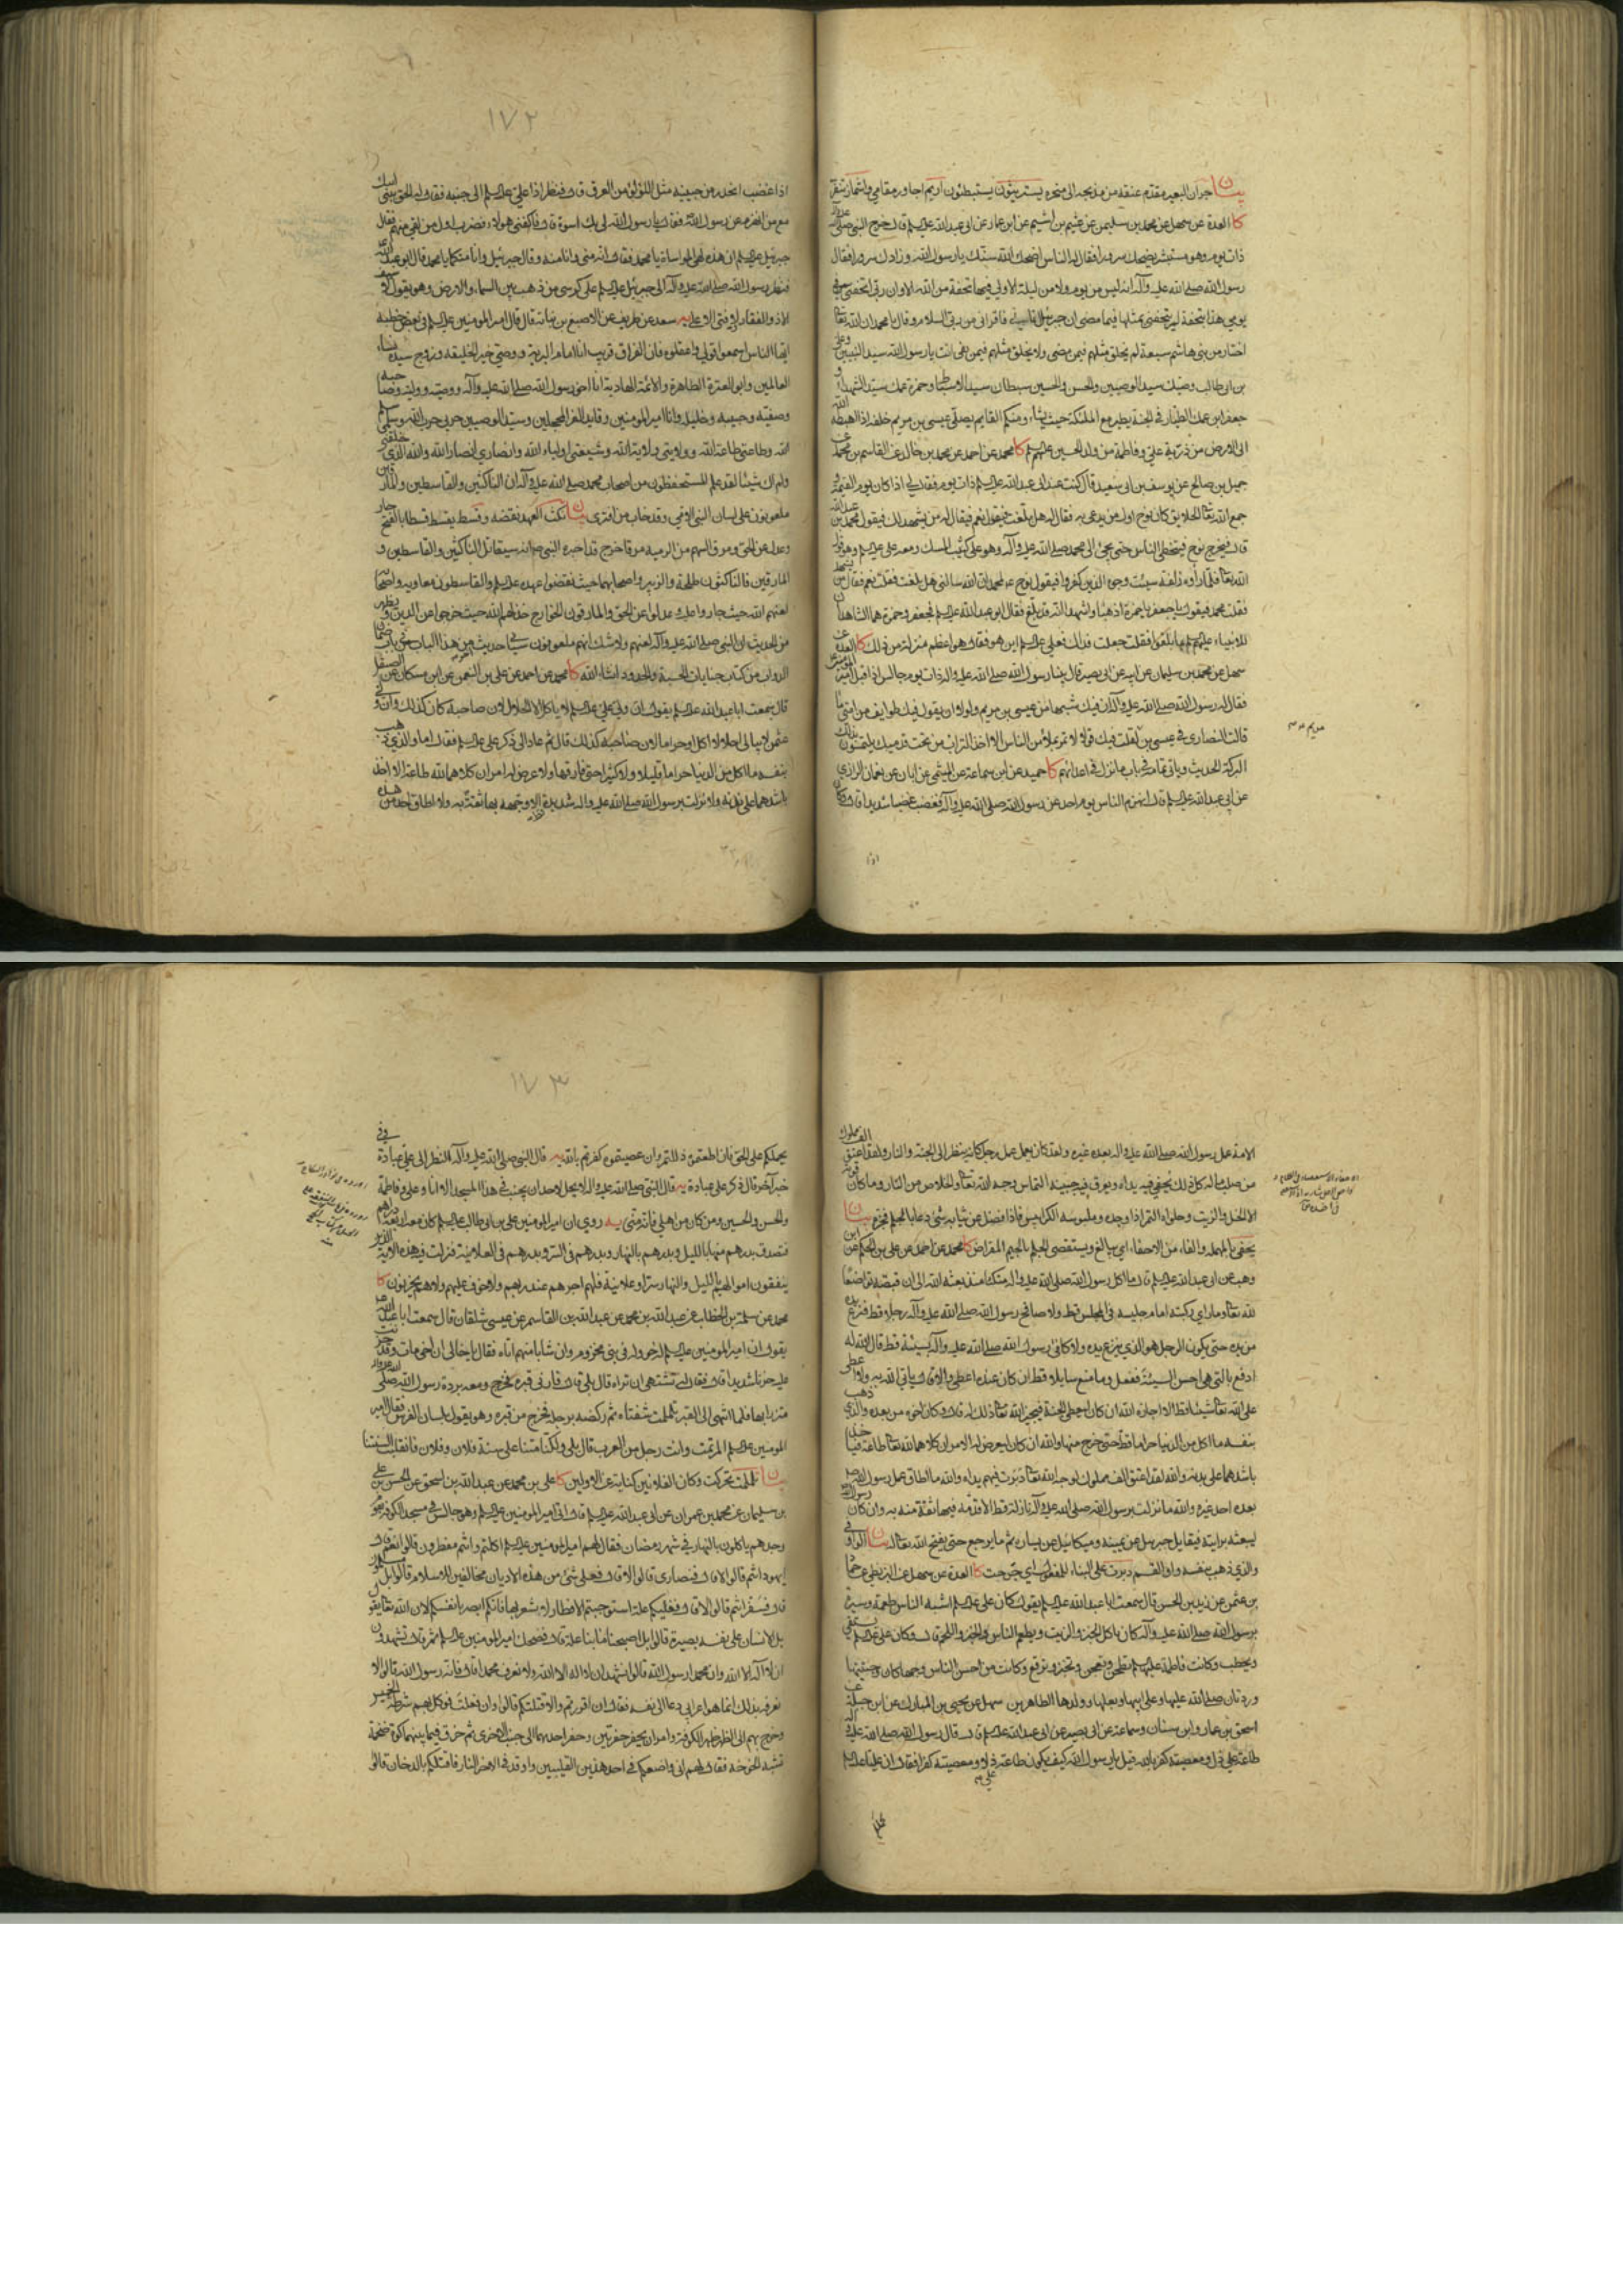 بيان جران البعير مقدم عنقه من مذبحه الى منحره يستريثون يستبطئون
كا العدة عن سهل عن محمد بن سليمن عن عيثم بن اشيم عن ابن عمار عن ابي عبد الله عليه السلم قال خرج النبي صلى الله عليه وآله
ذات يوم وهو مستبشر يضحك سرورا فقال له الناس اضحك الله سنك يا رسول الله وزادك سرورا فقال
رسول الله صلى الله عليه وآله انه ليس من يوم ولا من ليلة الا ولي فيها تحفة من الله الا وان ربي اتحفني في
يومي هذا بتحفة لم يتحفني بمثلها فيما مضى ان جبرئيل اتاني فاقراني من ربي السلام وقال يا محمد ان الله تعا
اختار من بني هاشم سبعة لم يخلق مثلهم فيمن مضى ولا يخلق مثلهم فيمن بقي انت يا رسول الله سيد النبيين وعلي
بن ابي طالب وصيك سيد الوصيين والحسن والحسين سبطاك سيدا الاسباط وحمزة عمك سيد الشهداء و
جعفر ابن عمك الطيار في الجنة يطير مع الملئكة حيث يشاء ومنكم القايم يصلي عيسى بن مريم خلفه اذا اهبطه الله
الى الارض من ذرية علي وفاطمة من ولد الحسين عليهم السلم كا محمد عن احمد عن محمد بن خالد عن القاسم بن محمد عن
جميل بن صالح عن يوسف بن ابي سعيد قال كنت عند ابي عبد الله عليه السلم ذات يوم فقال لي اذا كان يوم القيمة و
جمع الله تعا الخلايق كان نوح اول من يدعى به فقال له هل بلغت فيقول نعم فيقال له من يشهد لك فيقول محمد بن عبد الله
قال فيخرج نوح فيتخطى الناس حتى يجئ الى محمد صلى الله عليه وآله وهو على كثيب المسك ومعه علي عليه السلم وهو قول
الله تعا فلما رأوه زلفة سيئت وجوه الذين كفروا فيقول نوح لمحمد ان الله سالني هل بلغت فقلت نعم فقال من يشهد
فقلت محمد فيقول يا جعفر يا حمزة اذهبا واشهدا انه قد بلغ فقال ابو عبد الله عليه السلم فجعفر وحمزة هما الشاهدان
للانبياء عليهم السلم بما بلغوا فقلت جعلت فداك فعلي عليه السلم اين هو فقال هو اعظم منزلة من ذلك كا العدة عن
سهل عن محمد بن سليمان عن ابيه عن ابي بصير قال بينا رسول الله صلى الله عليه وآله ذات يوم جالس اذ اقبل امير المؤمنين
فقال له رسول الله صلى الله عليه وآله ان فيك شبها من عيسى بن مريم ولولا ان يقول فيك طوايف من امتي ما
قالت النصارى في عيسى بن لقلت فيك قولا لا تمر بملأ من الناس الا اخذوا التراب من تحت قدميك يلتمسون بذلك
البركة الحديث وياتي تمامه في باب ما نزل في اعدائهم كا حميد عن ابن سماعة عن الميثمي عن ابان عن نعمان الرازي
عن ابي عبد الله عليه السلم قال انهزم الناس يوم احد عن رسول الله صلى الله عليه وآله فغضب غضبا شديدا قال وكان
مريم
اذا
١٧٢
اذا غضب انحدر من جبينه مثل اللؤلؤ من العرق قال فنظر فاذا علي عليه السلم الى جنبه فقال له الحق ببني ابيك
مع من انهزم عن رسول الله فقال يا رسول الله لي بك اسوة قال فاكفني هؤلاء فضرب اول من لقي منهم فقال
جبرئيل عليه السلم ان هذه لهي المواساة يا محمد فقال انه مني وانا منه وقال جبرئيل وانا منكما يا محمد قال ابو عبد الله
فنظر رسول الله صلى الله عليه وآله الى جبرئيل عليه السلم على كرسي من ذهب بين السماء والارض وهو يقول لا سيف
الا ذو الفقار ولا فتى الا علي يه سعد بن طريف عن الاصبغ بن نباتة قال قال امير المؤمنين عليه السلم في بعض خطبه
ايها الناس اسمعوا قولي واعقلوه فان الفراق قريب انا امام البرية ووصي خير الخليقة وزوج سيدة نساء
العالمين وابو العترة الطاهرة والائمة الهادية انا اخو رسول الله صلى الله عليه وآله ووصيه ووليه وصاحبه
وصفيه وحبيبه وخليله وانا امير المؤمنين وقايد الغر المحجلين وسيد الوصيين حربي حرب الله وسلمي سلم
الله وطاعتي طاعة الله وولايتي ولاية الله وشيعتي اولياء الله وانصاري انصار الله والله الذي خلقني
ولم اك شيئا لقد علم المستحفظون من اصحاب محمد صلى الله عليه وآله ان الناكثين والقاسطين والمارقين
ملعونون على لسان النبي الامي وقد خاب من افترى بيان نكث العهد نقضه وقسط يقسط قسطا بالفتح جار
وعدل عن الحق ومرق السهم من الرمية مروقا خرج قد اخبره النبي انه سيقاتل الناكثين والقاسطين و
المارقين فالناكثون طلحة والزبير واصحابهما حيث نقضوا عهده عليه السلم والقاسطون معاوية واصحابه
لعنهم الله حيث جاروا عليه وعدلوا عن الحق والمارقون الخوارج خذلهم الله حيث خرجوا من الدين ويظهر
من الحديث ان النبي صلى الله عليه وآله لعنهم ولا شك انهم ملعونون سيأتي حديث اخر من هذا الباب في باب ضمان
الدواب من كتاب جنايات الحسبة والحدود انشاء الله كا محمد عن احمد عن علي بن النعمن عن ابن مسكان عن الصيقل
قال سمعت ابا عبد الله عليه السلم يقول ان ولي علي عليه السلم لا ياكل الا الحلال لان صاحبه كان كذلك وان ولي
عثمن لا يبالي احلالا اكل او حراما لان صاحبه كذلك قال ثم عاد الى ذكر علي عليه السلم فقال اما والذي ذهب
بنفسه ما اكل من الدنيا حراما قليلا ولا كثيرا حتى فارقها ولا عرض له امران كلاهما لله طاعة الا اخذ
باشدهما على بدنه ولا نزلت برسول الله صلى الله عليه وآله شديدة الا وجهه بها ثقة به ولا اطاق احد من هذه
الامة عمل رسول الله صلى الله عليه وآله بعده غيره ولقد كان يعمل عمل رجل كانه ينظر الى الجنة والنار ولقد اعتق الف مملوك
من صلب ماله كل ذلك تحفى فيه يداه ويعرق فيه جبينه التماس وجه الله تعا والخلاص من النار وما كان قوته
الا الخل والزيت وحلواه التمر اذا وجده وملبوسه الكرابيس فاذا فضل عن ثيابه شئ دعا بالجلم فجزه بيان
يحفى بالمهملة والفاء من الاحفاء اي يبالغ ويستقصى الجلم بالجيم المقراض كا محمد عن احمد عن علي بن الحكم عن ابن
وهب عن ابي عبد الله عليه السلم قال ما اكل رسول الله صلى الله عليه وآله متكئا منذ بعثه الله الى ان قبضه تواضعا
لله تعا وما رأى ركبته امام جليسه في مجلس قط ولا صافح رسول الله صلى الله عليه وآله رجلا قط فنزع يده
من يده حتى يكون الرجل هو الذي ينزع يده ولا كافا رسول الله صلى الله عليه وآله بسيئة قط قال الله له
ادفع بالتي هي احسن السيئة ففعل وما منع سايلا قط ان كان عنده اعطى والا قال ياتي الله به ولا اعطى
على الله تعا شيئا قط الا اجازه الله ان كان ليعطي الجنة فيجيز الله تعا ذلك له قال وكان اخوه من بعده والذي ذهب
بنفسه ما اكل من الدنيا حراما قط حتى خرج منها والله ان كان ليعرض له الامران كلاهما لله تعا طاعة فياخذ
باشدهما على بدنه والله لقد اعتق الف مملوك لوجه الله تعا دبرت فيهم يداه والله ما اطاق عمل رسول الله
بعده احد غيره والله ما نزلت برسول الله صلى الله عليه وآله نازلة قط الا قدمه فيها ثقة منه به وان كان رسول الله
ليبعثه برايته فيقاتل جبرئيل عن يمينه وميكائيل عن يساره ثم ما يرجع حتى يفتح الله تعا له بيان الواو في
والذي ذهب بنفسه واو القسم دبرت على البناء للمفعول اي جرحت كا العدة عن سهل عن البزنطي عن حماد
بن عثمن عن زيد بن الحسن قال سمعت ابا عبد الله عليه السلم يقول كان علي عليه السلم اشبه الناس طعمة وسيرة
برسول الله صلى الله عليه وآله كان ياكل الخبز والزيت ويطعم الناس الخبز واللحم قال وكان علي عليه السلم يستقي
ويحطب وكانت فاطمة عليها السلم تطحن وتعجن وتخبز وترقع وكانت من احسن الناس وجها كان وجنتيها
وردتان صلى الله عليها وعلى ابيها وبعلها وولدها الطاهرين سهل عن يحيى بن المبارك عن ابن جبلة عن
اسحق بن عمار وابن سنان وسماعة عن ابي بصير عن ابي عبد الله عليه السلم قال قال رسول الله صلى الله عليه وآله
طاعة علي ذل ومعصيته كفر بالله قيل يا رسول الله كيف يكون طاعة علي ذلا ومعصيته كفرا فقال ان عليا عليه السلم
١٧٣
يحملكم على الحق فان اطعتموه ذللتم وان عصيتموه كفرتم بالله يه قال النبي صلى الله عليه وآله النظر الى علي عبادة وفي
خبر آخر قال ذكر علي عبادة يه قال النبي صلى الله عليه وآله لا يحل لاحد ان يجنب في هذا المسجد الا انا وعلي وفاطمة
والحسن والحسين ومن كان من اهلي فانه مني يه روي ان امير المؤمنين علي بن ابي طالب عليه السلم كان معه اربعة دراهم
فتصدق بدرهم منها بالليل وبدرهم بالنهار وبدرهم في السر وبدرهم في العلانية فنزلت فيه هذه الآية الذين
ينفقون اموالهم بالليل والنهار سرا وعلانية فلهم اجرهم عند ربهم ولا خوف عليهم ولا هم يحزنون كا
محمد عن سلمة بن الخطاب عن عبد الله بن محمد عن عبد الله بن القاسم عن عيسى شلقان قال سمعت ابا عبد الله
يقول ان امير المؤمنين عليه السلم له خؤولة في بني مخزوم وان شابا منهم اتاه فقال يا خالي ان اخي مات وقد حزنت
عليه حزنا شديدا قال فقال له تشتهي ان تراه قال بلى قال فارني قبره فخرج ومعه بردة رسول الله صلى الله عليه وآله
متزرا بها فلما انتهى الى القبر تلملمت شفتاه ثم ركضه برجله فخرج من قبره وهو يقول بلسان الفرس فقال امير
المؤمنين عليه السلم الم تمت وانت رجل من العرب قال بلى ولكنا متنا على سنة فلان وفلان فانقلبت السنتنا
بيان تلملمت تحركت وكان الفلانين كناية عن الاولين كا علي بن محمد عن عبد الله بن اسحق عن الحسن بن علي
بن سليمان عن محمد بن عمران عن ابي عبد الله عليه السلم قال اتي امير المؤمنين عليه السلم وهو جالس في مسجد الكوفة بقوم
وجدهم ياكلون بالنهار في شهر رمضان فقال لهم امير المؤمنين عليه السلم اكلتم وانتم مفطرون قالوا نعم قال
يهود انتم قالوا لا قال فنصارى قالوا لا قال فعلى شئ من هذه الاديان مخالفين للاسلام قالوا بل مسلمون
قال فسفر انتم قالوا لا قال فعليكم علة استوجبتم الافطار لا نشعر بها فانكم ابصر بانفسكم لان الله تعا يقول
بل الانسان على نفسه بصيرة قالوا بل اصبحنا ما بنا علة قال فضحك امير المؤمنين عليه السلم ثم قال تشهدون
ان لا اله الا الله وان محمدا رسول الله قالوا نشهد ان لا اله الا الله ولا نعرف محمدا قال فانه رسول الله قالوا لا
نعرفه بذلك انما هو اعرابي دعا الى نفسه فقال ان اقررتم والا قتلتكم قالوا وان فعلت فوكل بهم شرطة الخميس
وخرج بهم الى الظهر ظهر الكوفة وامر ان يحفر حفرتين وحفر احدهما الى جنب الاخرى ثم خرق فيما بينهما كوة ضخمة
شبه الخوخة فقال لهم اني واضعكم في احد هذين القليبين واوقد في الاخر النار فاقتلكم بالدخان قالوا